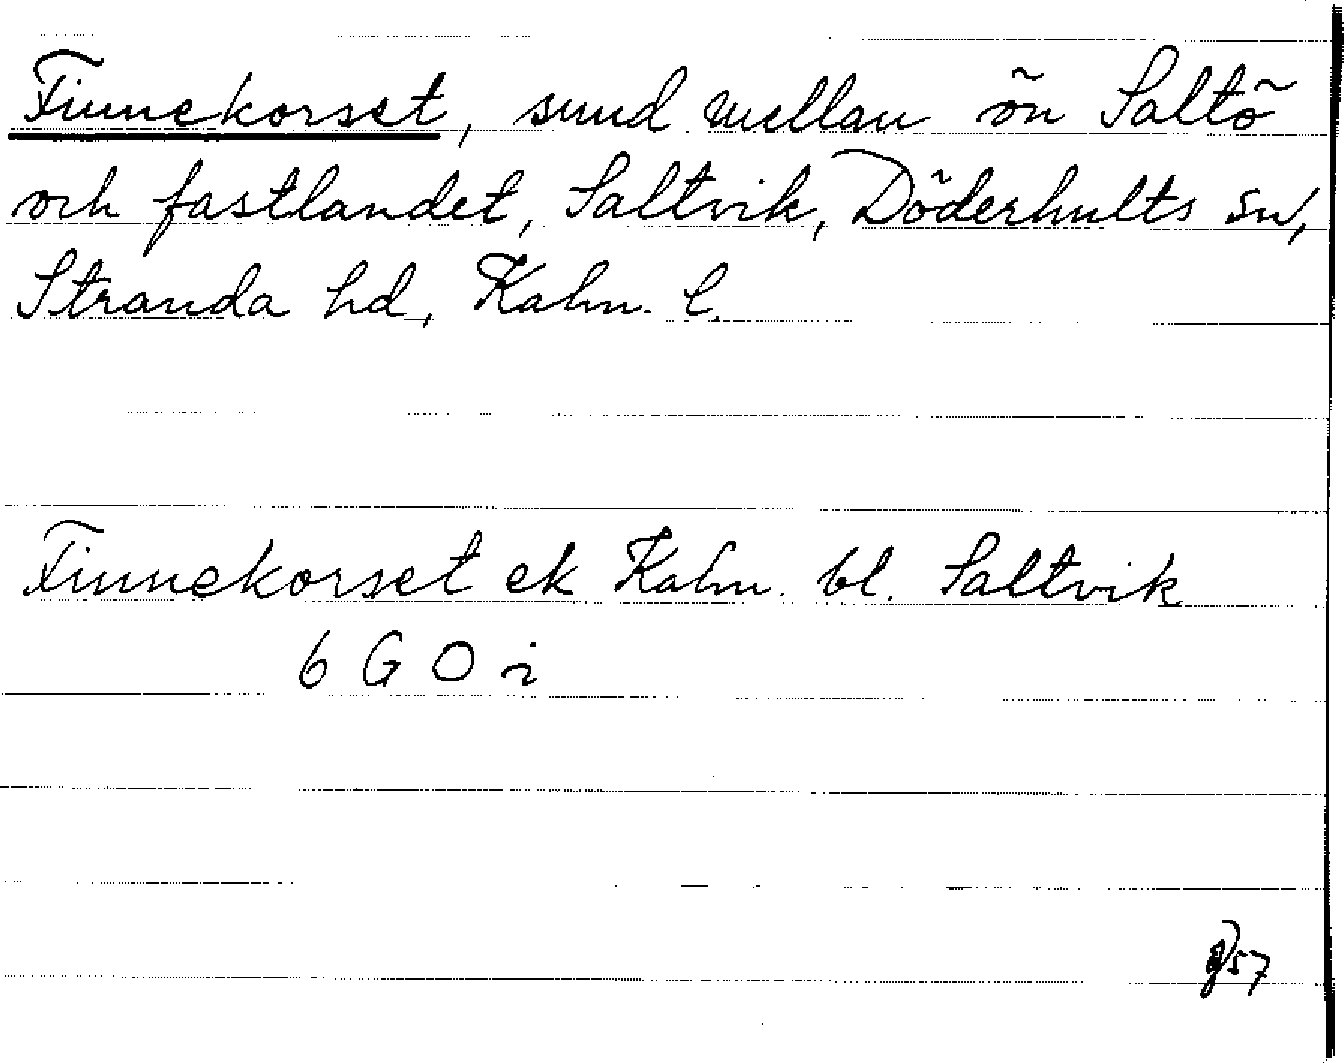 Finnekorset, sund mellan ön Saltö
och fastlandet, Saltvik, Döderhults sn,
Stranda hd, Kalm. l.
Finnekorset ek Kalm. bl. Saltvik
6 G O i
57